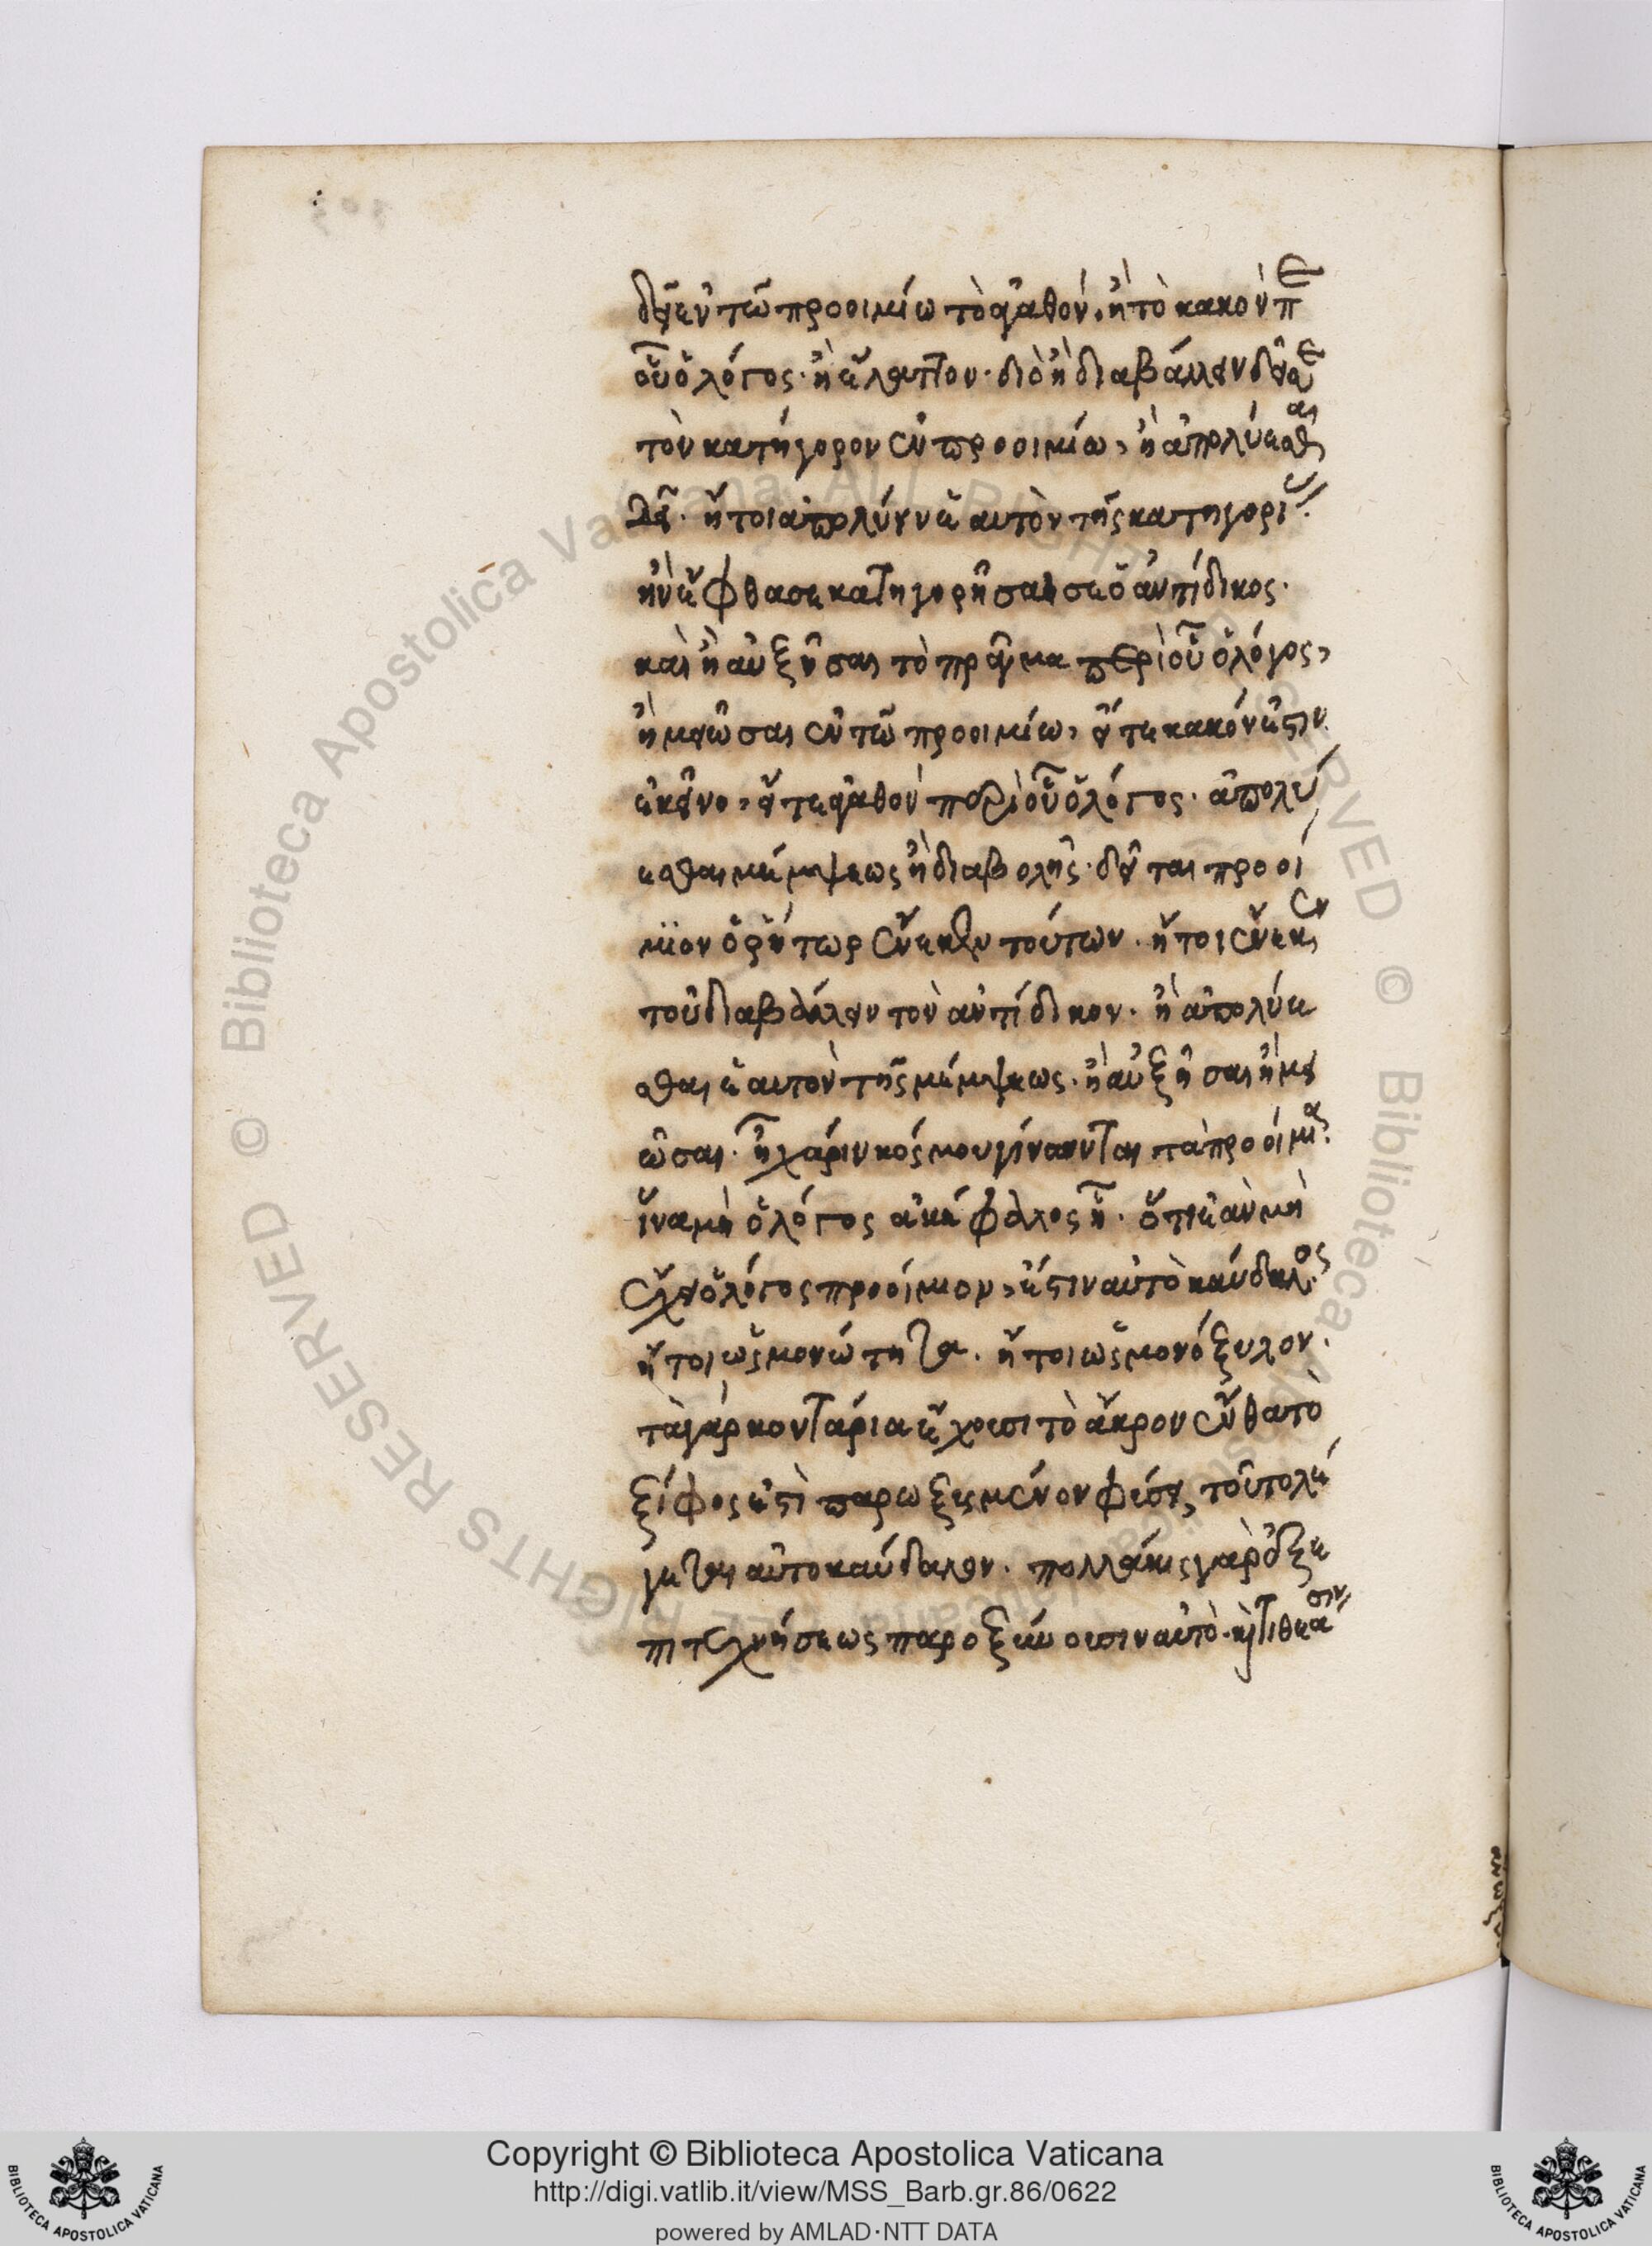 δεῖ ἐν τῶ προοιμίω τὸ ἀγαθὸν, ἢ τὸ κακὸν περὶ
οὗ ὁ λόγος· ἢ ἔλαττον· διὸ ἢ διαβάλλειν δεῖ
τὸν κατήγορον ἐν προοιμίω, ἢ ἀπολύεσθαι
ἤτοι ἀπολύειν ἑαυτὸν τῆς κατηγορίας·
ἣν ἔφθασε κατηγορῆσαι σε ὁ ἀντίδικος·
καὶ ἢ αὐξῆσαι τὸ πρᾶγμα περὶ οὗ ὁ λόγος,
ἢ μειῶσαι ἐν τῶ προοιμίω, εἴτε κακόν ἐστιν
ἐκεῖνο, εἴτε ἀγαθὸν περὶ οὗ ὁ λόγος· ἀπολύ
εσθαι μέμψεως ἢ διαβολῆς· δεῖται προοι
μίον ὁ ῥήτωρ ἕνεκεν τούτων· ἤτοι ἕνεκεν
τοῦ διαβάλλειν τὸν ἀντίδικον· ἢ ἀπολύε
σθαι ἑαυτὸν τῆς μέμψεως· ἢ αὐξῆσαι ἢ μει
ῶσαι· ἢ χάριν κόσμου γίνονται τὰ προοίμια·
ἵνα μὴ ὁ λόγος ἀκέφαλος ἦ· ὅτι ἐὰν μὴ
ἔχει ὁ λόγος προοίμιον, ἔστιν αὐτοκαύδαλος
ἤτοι ὡς μονώτητα· ἤτοι ὡς μονόξυλον·
τὰ γὰρ κοντάρια ἔχουσι τὸ ἄκρον ἔνθα τὸ
ξίφος ἐστὶ παρωξυσμένον φύσει, τοῦτο λέ
γεται αὐτοκαύδαλον· πολλάκις γὰρ ἐξ ἐ
πιτεχνήσεως παροξύνουσιν αὐτὸ· καὶ τιθέασιν